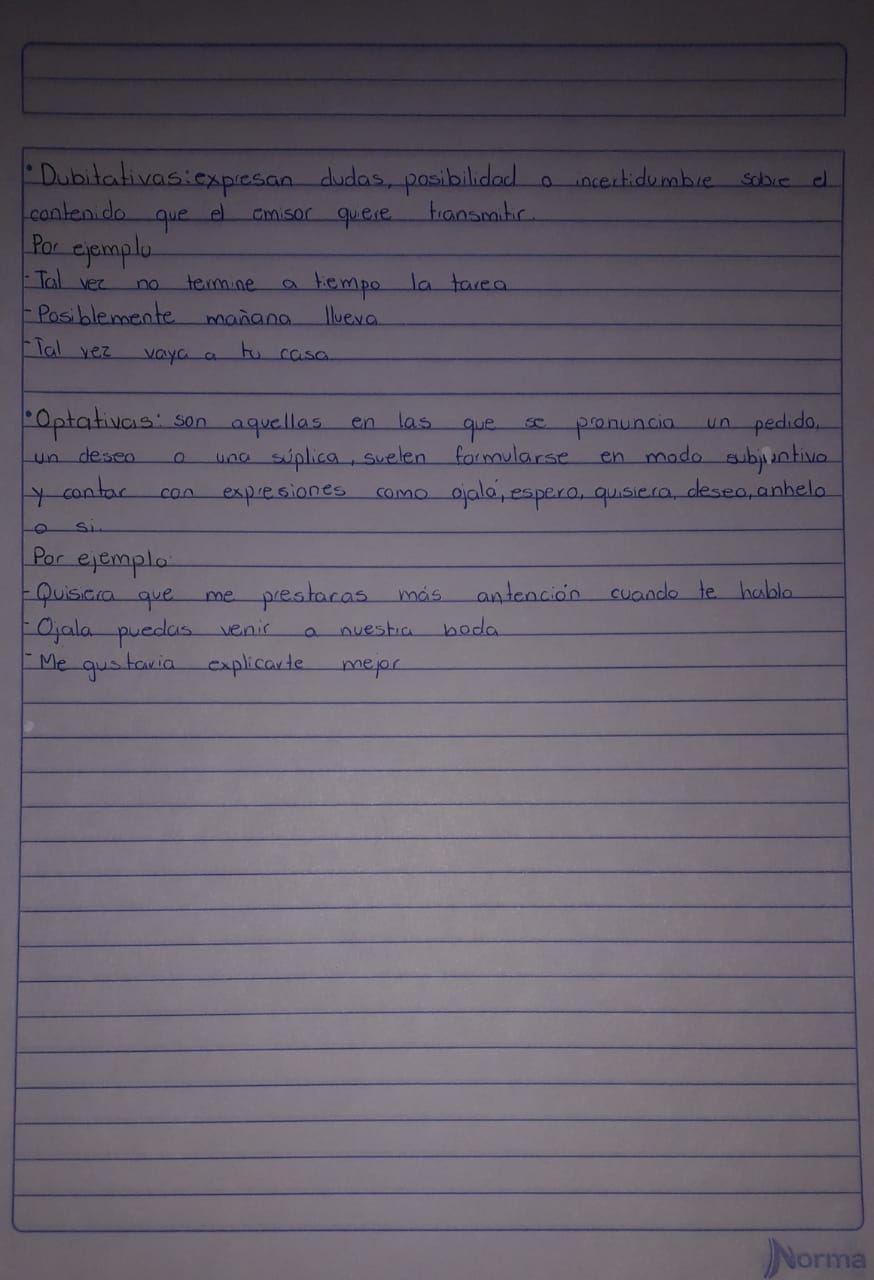 •Dubitativas: expresan dudas, posibilidad o incertidumbre sobre el
contenido que el emisor quiere transmitir.
Por ejemplo
-Tal vez no termine a tiempo la tarea
-Posiblemente mañana llueva
-Tal vez vaya a tu casa
•Optativas: son aquellas en las que se pronuncia un pedido,
un deseo o una súplica, suelen formularse en modo subjuntivo
y contar con expresiones como ojalá, espero, quisiera, deseo, anhelo
o si.
Por ejemplo:
-Quisiera que me prestaras más antención cuando te hablo
-Ojala puedas venir a nuestra boda
-Me gustaria explicarte mejor
Norma